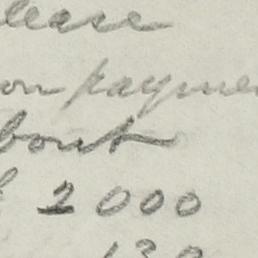 lease
on payme
bout
2000
130